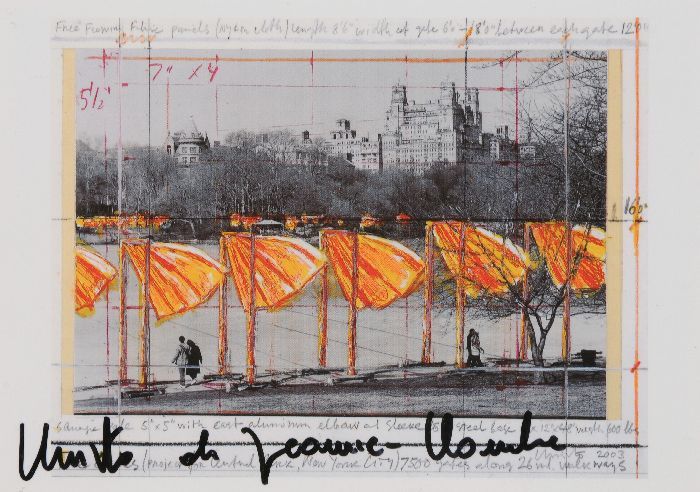 Free Flowing Fabric panels (nylon cloth) length 8'6" width of gate 6'0" - 18'0" between each gate 12'0"
7" x 4
5½"
16'0"
5" x 5" with cast aluminum elbow and sleeve steel base
(project for Central Park, New York City) 7500 gates along 26 mi. walkways
Christo 2003
Christo & Jeanne-Claude